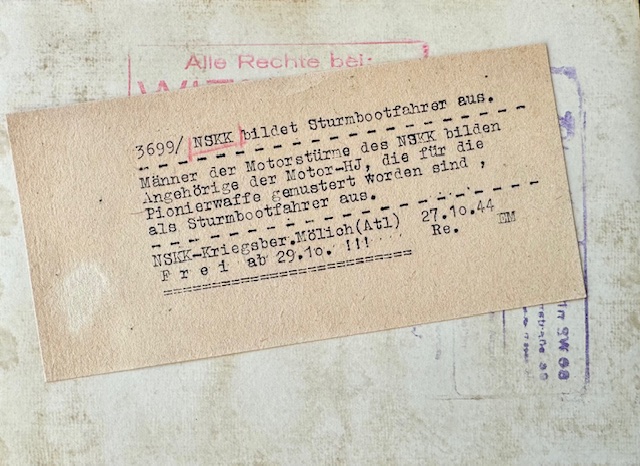 Alle Rechte bei:
3699/ NSKK bildet Sturmbootfahrer aus.
Männer der Motorstürme des NSKK bilden
Angehörige der Motor-HJ, die für die
Pionierwaffe gemustert worden sind ,
als Sturmbootfahrer aus.
NSKK-Kriegsber.Mölich(Atl) 27.10.44 EM
F r e i ab 29.1o. !!! Re.
SW 68